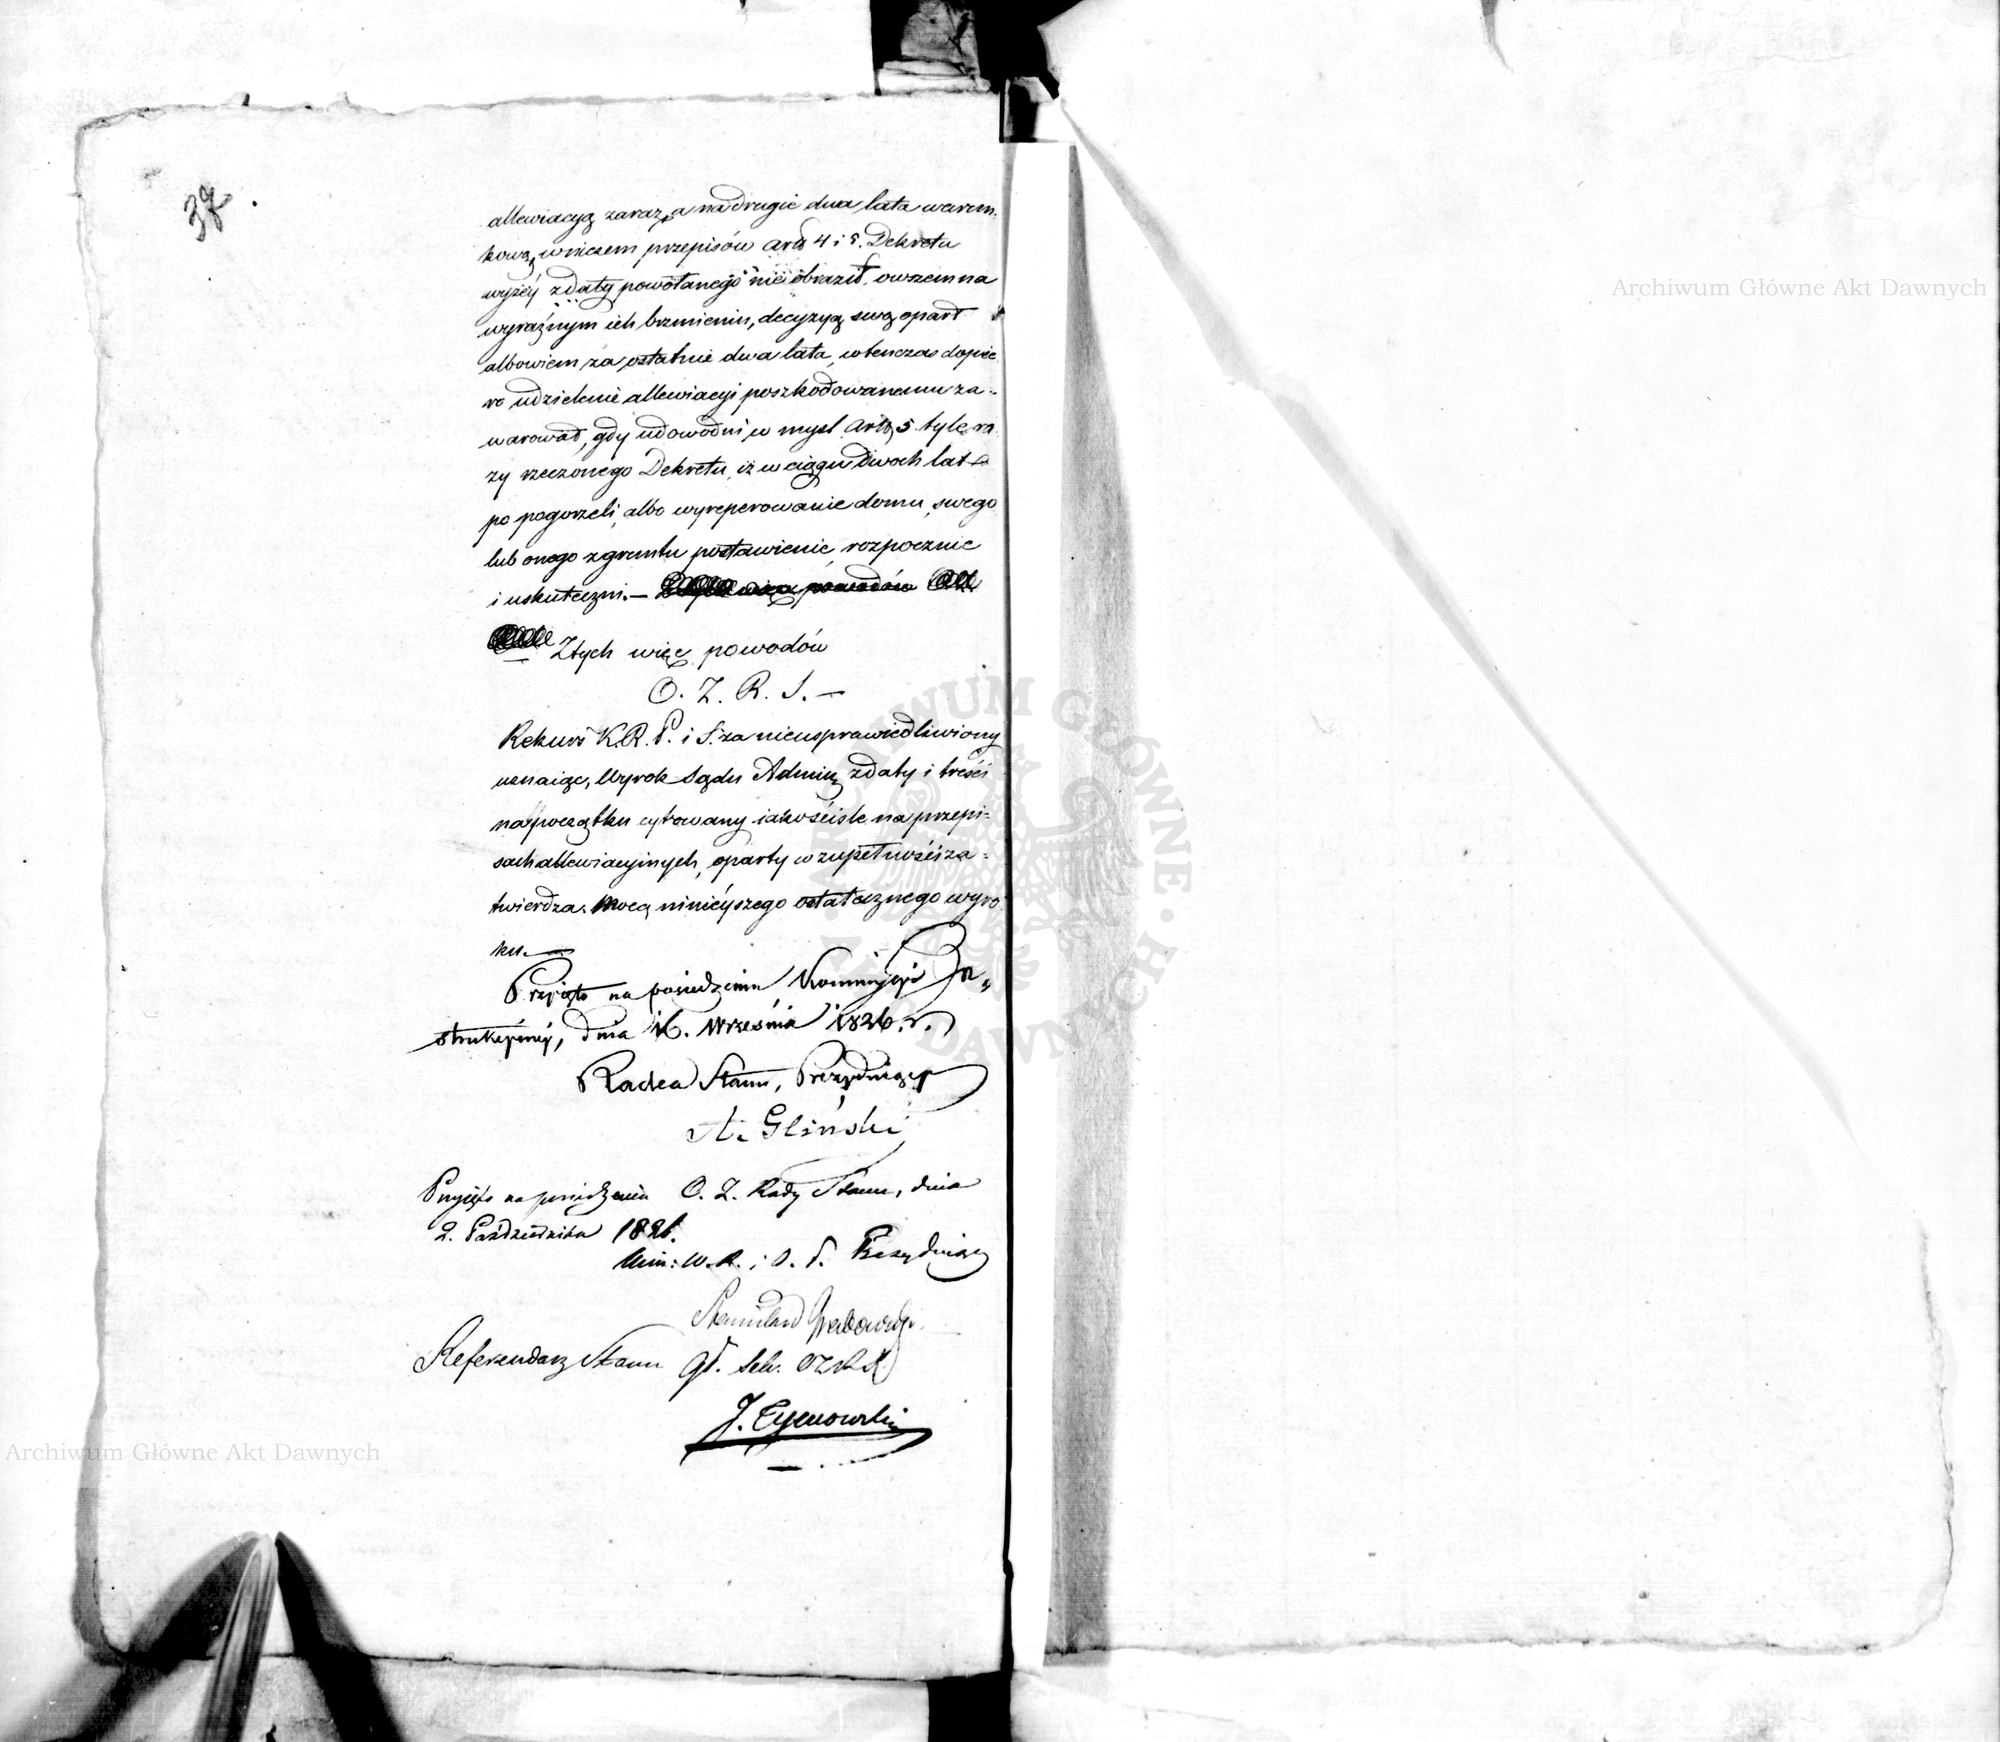 37.
allewiacyą zaraz, a na drugie dwa lata warun-
kową, wniczem przepisów Artt 4 i 5. Dekretu
wyżéy zdaty powołanego nie obraził, owszem na
wyraźnym ich brzmieniu, decyzyą swą oparł
albowiem za ostatnie dwa lata, wtenczas dopie
ro udzielenie allewiacyi poszkodowanemu za-
warował, gdy udowodni w mysl Artt 5. tyle ra
zy rzeczonego Dekretu, iż w ciągu dwoch lat
po pogorzeli, albo wyreperowanie domu, swego
lub onego z gruntu postawienie, rozpocznie
i uskuteczni. — więc powodów
Ztych więc powodów
O. Z. R. S. —
Rekurs K. R. P. i S. za nieusprawiedliwiony
uznaiąc, Wyrok Sądu Admin zdaty i treści
na początku cytowany iako ściśle na przepi-
sach allewiacyinych, oparty w zupełności za-
twierdza. Mocą ninieyszego ostatecznego wyro
ku. —
Przyięto na posiedzeniu Kommissyi In-
strukcyinéy, dnia 16. Września 1826. r.
Radca Stanu, Prezyduiący
A. Gliński
Przyięto na posiedzeniu O. Z. Rady Stanu, dnia
2. Października 1826.
Min: W. R. i O. P. Prezyduiący
Stanisław Grabowski
Referendarz Stanu gł. sek. OZRS.
J. Tymowski
Archiwum Główne Akt Dawnych
Archiwum Główne Akt Dawnych
ARCHIWUM GŁÓWNE AKT DAWNYCH